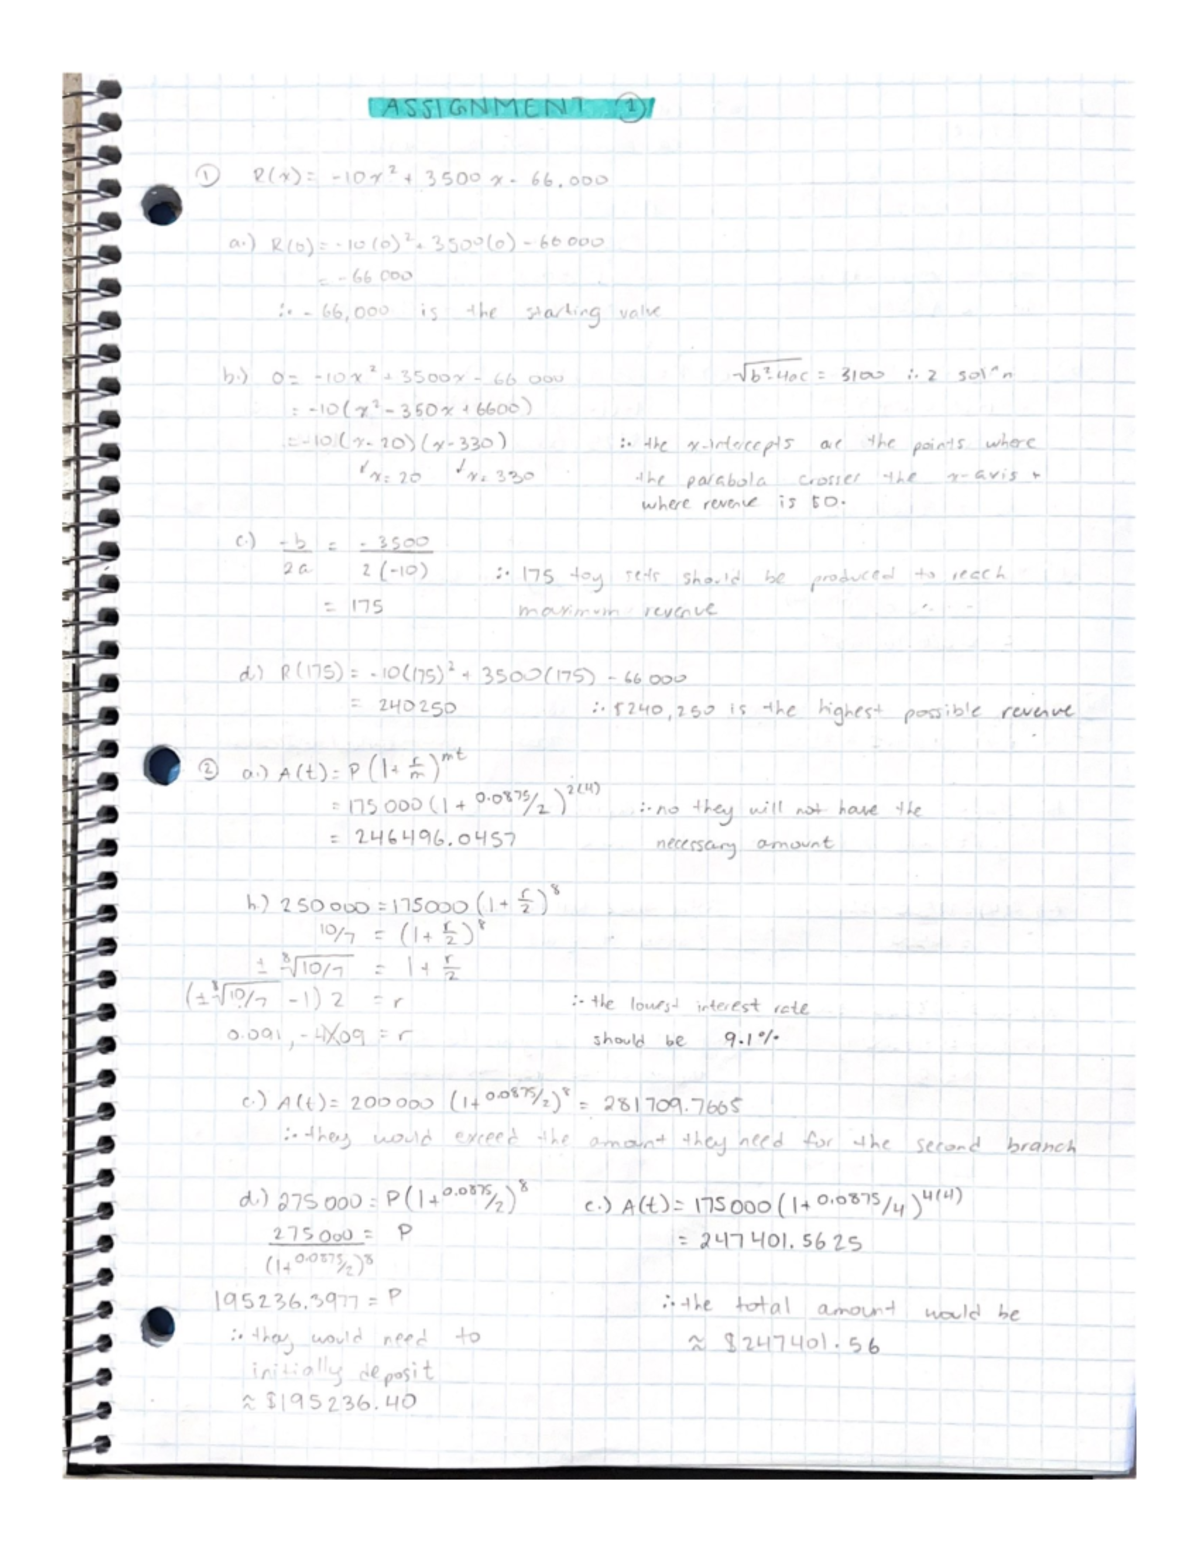 ASSIGNMENT ①
① R(x) = -10x² + 3500x - 66,000
a.) R(0) = -10(0)² + 3500(0) - 66 000
= -66 000
∴ -66,000 is the starting value
b.) 0 = -10x² + 3500x - 66 000
= -10(x² - 350x + 6600)
= -10(x - 20)(x - 330)
x = 20 x = 330
√b²-4ac = 3100 ∴ 2 sol^n
∴ the x-intercepts are the points where
the parabola crosses the x-axis +
where revenue is $0.
c.) -b/2a = -3500/2(-10)
= 175
∴ 175 toy sets should be produced to reach
maximum revenue
d.) R(175) = -10(175)² + 3500(175) - 66 000
= 240250
∴ $240,250 is the highest possible revenue
② a.) A(t) = P(1 + r/m)^mt
= 175 000(1 + 0.0875/2)^2(4)
= 246496.0457
∴ no they will not have the
necessary amount
b.) 250 000 = 175000(1 + r/2)^8
10/7 = (1 + r/2)^8
± ⁸√10/7 = 1 + r/2
(± ⁸√10/7 - 1) 2 = r
0.091, -4.09 = r
∴ the lowest interest rate
should be 9.1%
c.) A(t) = 200 000 (1 + 0.0875/2)^8 = 281709.7665
∴ they would exceed the amount they need for the second branch
d.) 275 000 = P(1 + 0.0875/2)^8
275 000/(1 + 0.0875/2)^8 = P
195236.3977 = P
∴ they would need to
initially deposit
≈ $195236.40
e.) A(t) = 175 000(1 + 0.0875/4)^4(4)
= 247401.5625
∴ the total amount would be
≈ $247401.56